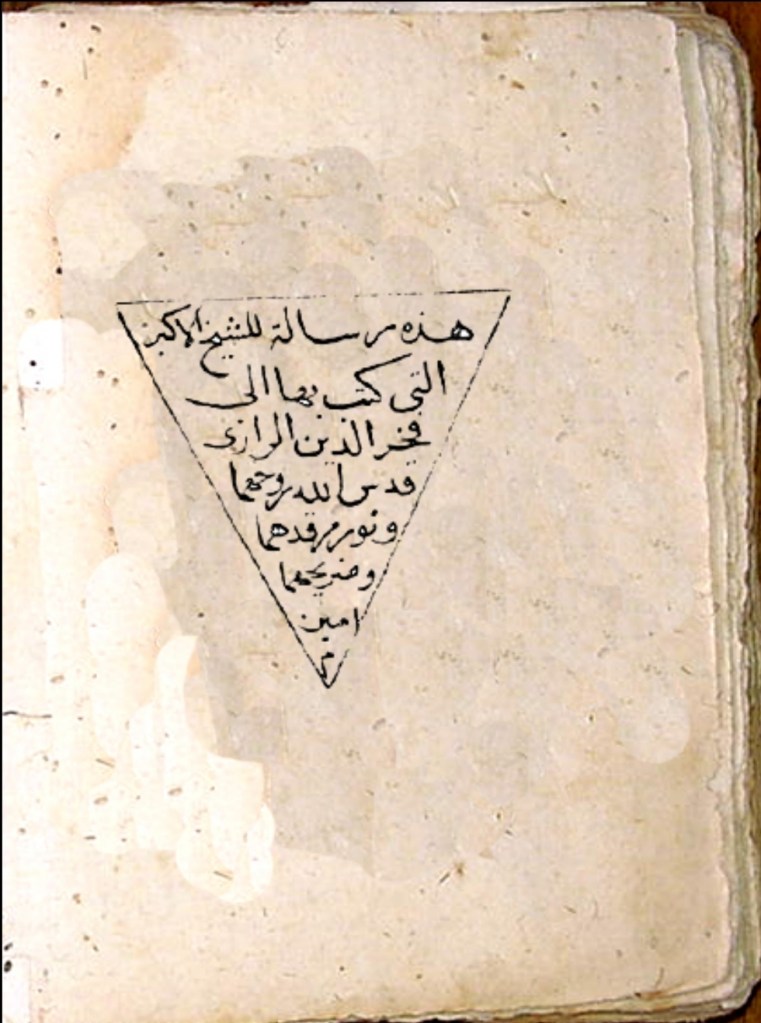 هذه رسالة للشيخ الاكبر
التى كتب بها الى
فخر الدين الرازى
قدس الله روحهما
ونور مرقدهما
وضريحهما
امين
م